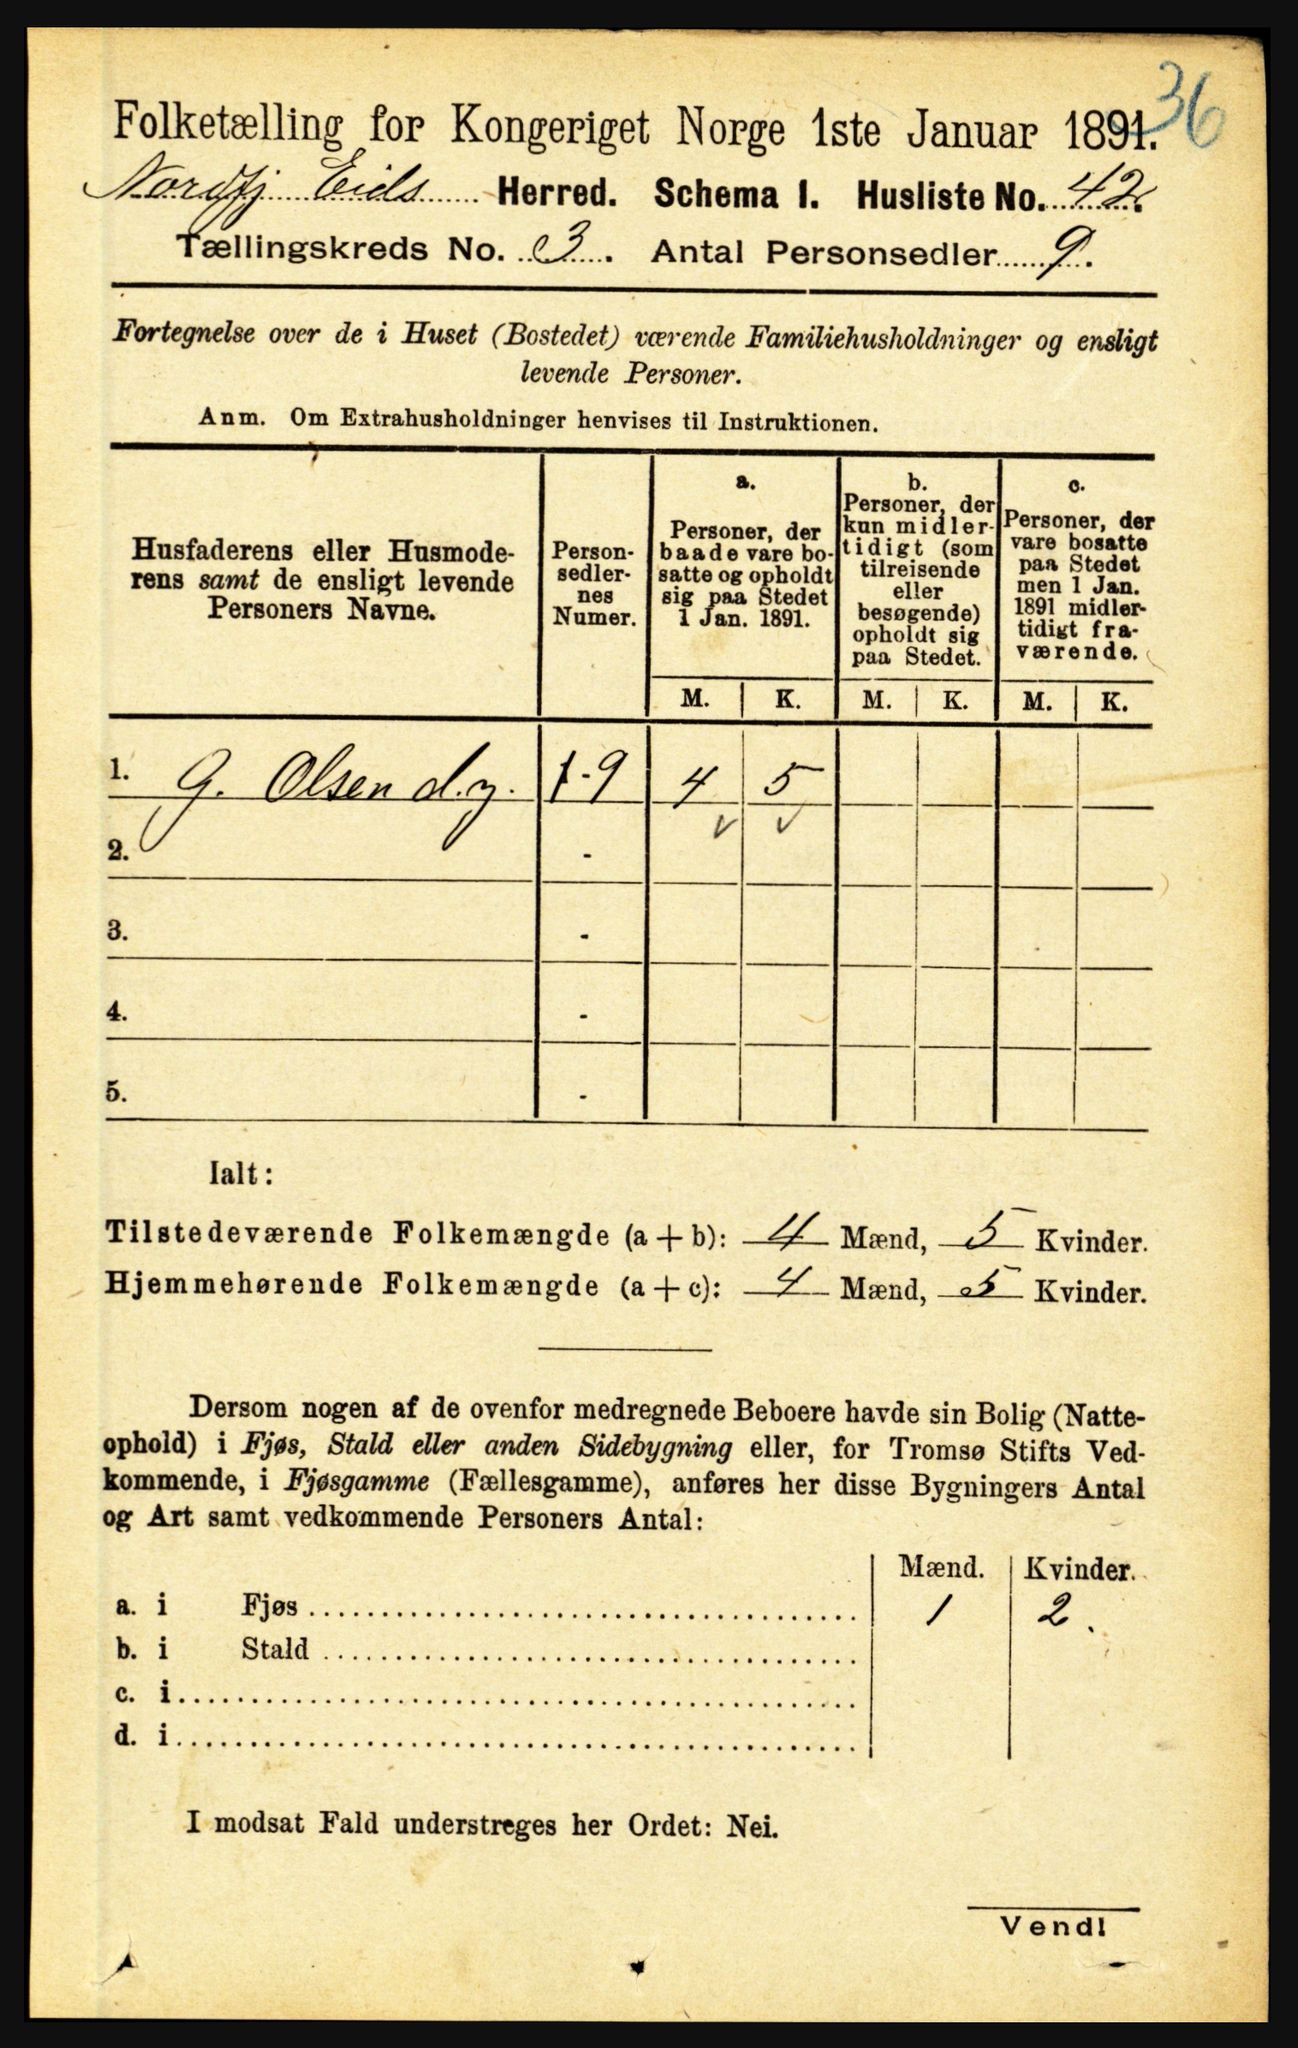 36
Folketælling for Kongeriget Norge 1ste Januar 1891.
Nordfj Eids Herred. Schema I. Husliste No. 42.
Tællingskreds No. 3. Antal Personsedler 9.
Fortegnelse over de i Huset (Bostedet) værende Familiehusholdninger og ensligt
levende Personer.
Anm. Om Extrahusholdninger henvises til Instruktionen.
Husfaderens eller Husmode-
rens samt de ensligt levende
Personers Navne.
Person-
sedler-
nes
Numer.
a.
Personer, der
baade vare bo-
satte og opholdt
sig paa Stedet
1 Jan. 1891.
b.
Personer, der
kun midler-
tidigt (som
tilreisende
eller
besøgende)
opholdt sig
paa Stedet.
c.
Personer, der
vare bosatte
paa Stedet
men 1 Jan.
1891 midler-
tidigt fra-
værende.
M. K. M. K. M. K.
1. G. Olsen d.y. 1-9 4 5
2. -
3. -
4. -
5. -
Ialt:
Tilstedeværende Folkemængde (a + b): 4 Mænd, 5 Kvinder.
Hjemmehørende Folkemængde (a + c): 4 Mænd, 5 Kvinder.
Dersom nogen af de ovenfor medregnede Beboere havde sin Bolig (Natte-
ophold) i Fjøs, Stald eller anden Sidebygning eller, for Tromsø Stifts Ved-
kommende, i Fjøsgamme (Fællesgamme), anføres her disse Bygningers Antal
og Art samt vedkommende Personers Antal:
Mænd. Kvinder.
a. i Fjøs 1 2.
b. i Stald
c. i
d. i
I modsat Fald understreges her Ordet: Nei.
Vend!